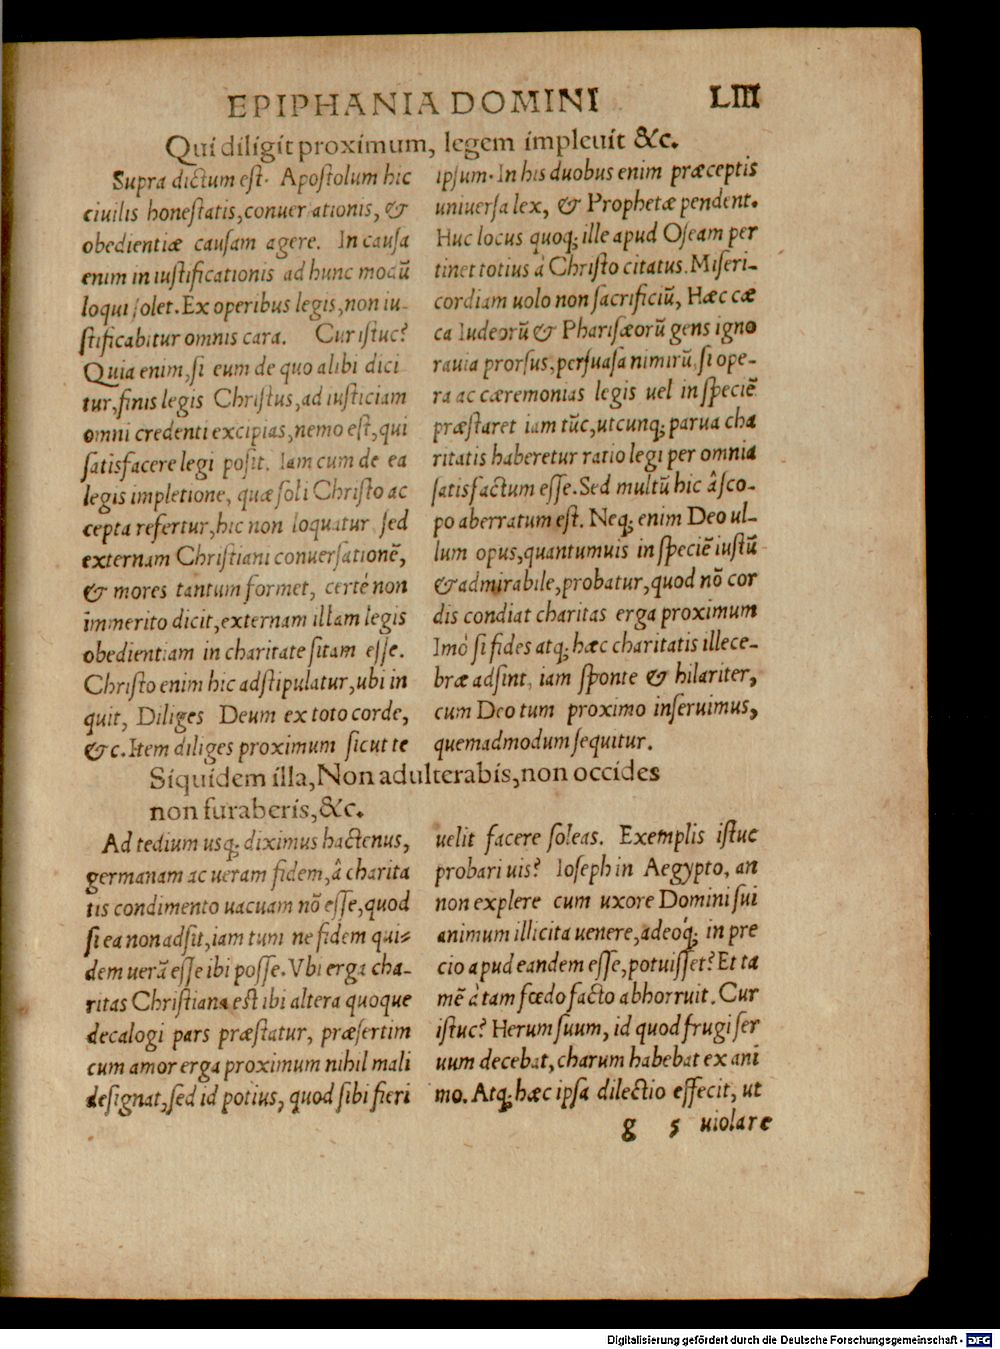 EPIPHANIA DOMINI LIII
Qui diligit proximum, legem impleuit &c.
Supra dictum est. Apostolum hic
ciuilis honestatis, conuersationis, &
obedientiæ causam agere. In causa
enim in iustificationis ad hunc modū
loqui solet. Ex operibus legis, non iu-
stificabitur omnis cara. Cur istuc?
Quia enim, si eum de quo alibi dici
tur, finis legis Christus, ad iusticiam
omni credenti excipias, nemo est, qui
satisfacere legi posit. Iam cum de ea
legis impletione, quæ soli Christo ac
cepta refertur, hic non loquatur sed
externam Christiani conuersationē,
& mores tantum formet, certé non
immerito dicit, externam illam legis
obedientiam in charitate sitam esse.
Christo enim hic adstipulatur, ubi in
quit, Diliges Deum ex toto corde,
&c. Item diliges proximum sicut te
ipsum. In his duobus enim præceptis
uniuersa lex, & Prophetæ pendent.
Huc locus quoq; ille apud Oseam per
tinet totius à Christo citatus. Miseri-
cordiam uolo non sacrificiū, Hæc cæ
ca Iudeorū & Pharisæorū gens igno
rauia prorsus, persuasa nimirū, si ope-
ra ac cæremonias legis uel in speciē
præstaret iam tūc, utcunq; parua cha
ritatis haberetur ratio legi per omnia
satisfactum esse. Sed multū hic â sco-
po aberratum est. Neq; enim Deo ul-
lum opus, quantumuis in speciē iustū
& admirabile, probatur, quod nō cor
dis condiat charitas erga proximum
Imò si fides atq; hæc charitatis illece-
bræ adsint, iam sponte & hilariter,
cum Deo tum proximo inseruimus,
quemadmodum sequitur.
Siquidem illa, Non adulterabis, non occides
non furaberis, &c.
Ad tedium usq; diximus hactenus,
germanam ac ueram fidem, â charita
tis condimento uacuam nō esse, quod
si ea non adsit, iam tum ne fidem qui-
dem uerā esse ibi posse. Vbi erga cha-
ritas Christiana est ibi altera quoque
decalogi pars præstatur, præsertim
cum amor erga proximum nihil mali
designat, sed id potius, quod sibi fieri
uelit facere soleas. Exemplis istuc
probari uis? Ioseph in Aegypto, an
non explere cum uxore Domini sui
animum illicita uenere, adeoq́; in pre
cio apud eandem esse, potuisset? Et ta
mē à tam fœdo facto abhorruit. Cur
istuc? Herum suum, id quod frugi ser
uum decebat, charum habebat ex ani
mo. Atq; hæc ipsa dilectio effecit, ut
g 5 uiolare
Digitalisierung gefördert durch die Deutsche Forschungsgemeinschaft - DFG